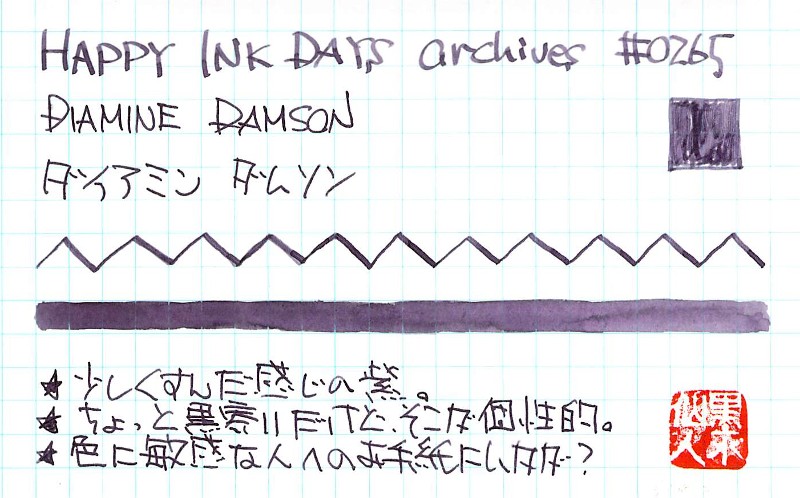 HAPPY INK DAYS archives #0265
DIAMINE DAMSON
ダイアミン ダムソン
★ 少しくすんだ感じの紫。
★ ちょっと黒寄りだけど、そこが個性的。
★ 色に敏感な人へのお手紙にいかが?